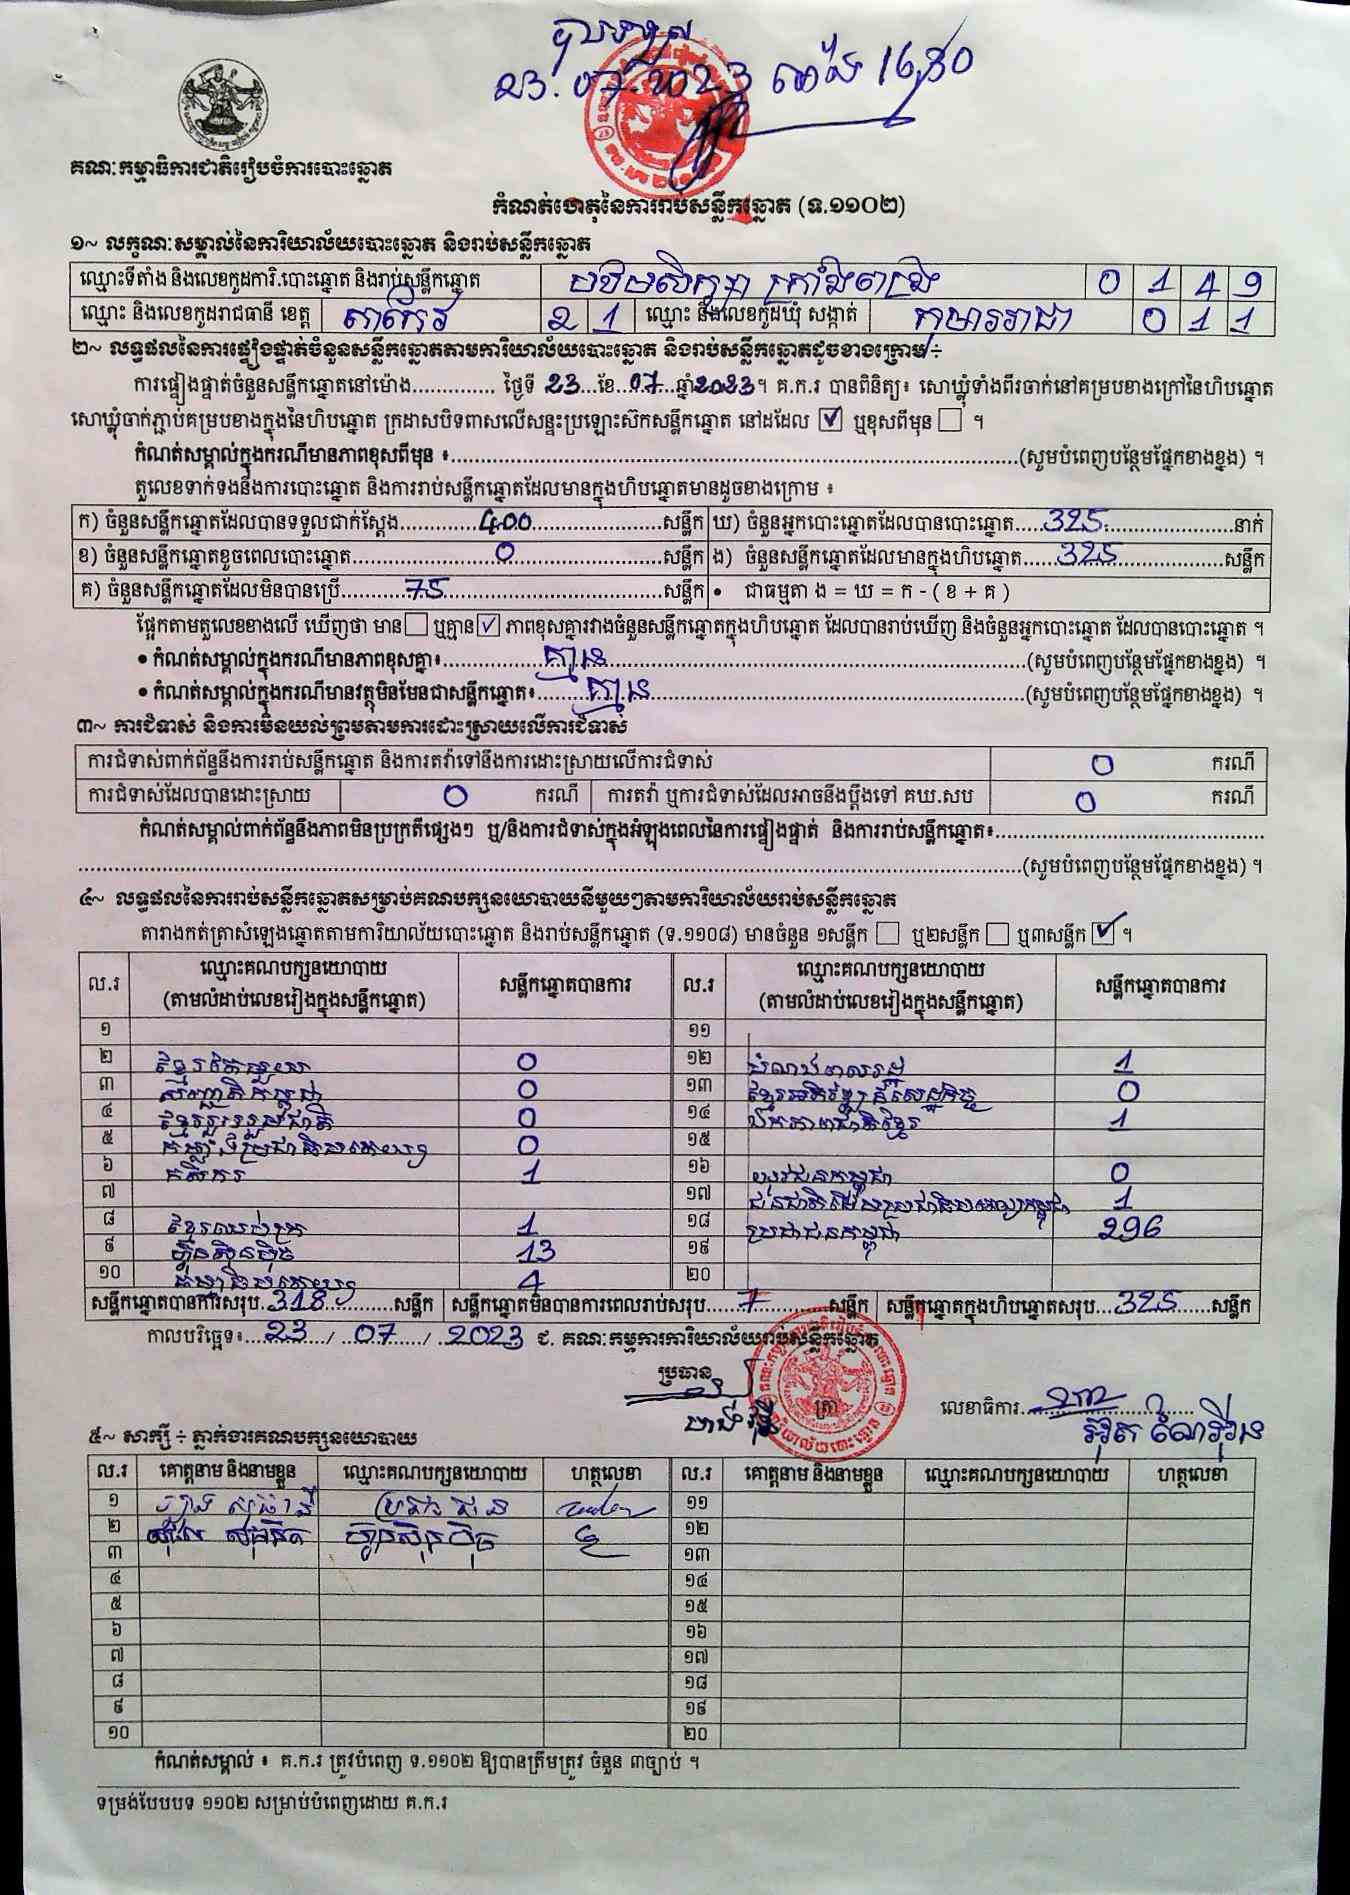 23.07.2023 ម៉ោង 16:30
គណៈកម្មាធិការជាតិរៀបចំការបោះឆ្នោត
កំណត់ហេតុនៃការរាប់សន្លឹកឆ្នោត (ទ.១១០២)
១~ លក្ខណៈសម្គាល់នៃការិយាល័យបោះឆ្នោត និងរាប់សន្លឹកឆ្នោត
ឈ្មោះទីតាំង និងលេខកូដការិ.បោះឆ្នោត និងរាប់សន្លឹកឆ្នោត 0 1 4 9
ឈ្មោះ និងលេខកូដរាជធានី ខេត្ត តាកែវ 2 1 ឈ្មោះ និងលេខកូដឃុំ សង្កាត់ កុមាររាជា 0 1 1
២~ លទ្ធផលនៃការផ្ទៀងផ្ទាត់ចំនួនសន្លឹកឆ្នោតតាមការិយាល័យបោះឆ្នោត និងរាប់សន្លឹកឆ្នោតដូចខាងក្រោម ÷
ការផ្ទៀងផ្ទាត់ចំនួនសន្លឹកឆ្នោតនៅម៉ោង.............. ថ្ងៃទី 23 ...ខែ. 07 ...ឆ្នាំ 2023 ។ គ.ក.រ បានពិនិត្យ៖ សោឃ្លុំទាំងពីរចាក់នៅគម្របខាងក្រៅនៃហិបឆ្នោត
សោឃ្លុំចាក់ភ្ជាប់គម្របខាងក្នុងនៃហិបឆ្នោត ក្រដាសបិទពាសលើសន្ទះប្រឡោះស៊កសន្លឹកឆ្នោត នៅដដែល ☑ ឬខុសពីមុន ☐ ។
កំណត់សម្គាល់ក្នុងករណីមានភាពខុសពីមុន ៖..............(សូមបំពេញបន្ថែមផ្នែកខាងខ្នង) ។
តួលេខទាក់ទងនឹងការបោះឆ្នោត និងការរាប់សន្លឹកឆ្នោតដែលមានក្នុងហិបឆ្នោតមានដូចខាងក្រោម ៖
ក) ចំនួនសន្លឹកឆ្នោតដែលបានទទួលជាក់ស្តែង..... 400 .....សន្លឹក ឃ) ចំនួនអ្នកបោះឆ្នោតដែលបានបោះឆ្នោត..... 325 .....នាក់
ខ) ចំនួនសន្លឹកឆ្នោតខូចពេលបោះឆ្នោត..... 0 .....សន្លឹក ង) ចំនួនសន្លឹកឆ្នោតដែលមានក្នុងហិបឆ្នោត..... 325 .....សន្លឹក
គ) ចំនួនសន្លឹកឆ្នោតដែលមិនបានប្រើ..... 75 .....សន្លឹក • ជាធម្មតា ង = ឃ = ក - ( ខ + គ )
ផ្អែកតាមតួលេខខាងលើ ឃើញថា មាន ☐ ឬគ្មាន ☑ ភាពខុសគ្នារវាងចំនួនសន្លឹកឆ្នោតក្នុងហិបឆ្នោត ដែលបានរាប់ឃើញ និងចំនួនអ្នកបោះឆ្នោត ដែលបានបោះឆ្នោត ។
• កំណត់សម្គាល់ក្នុងករណីមានភាពខុសគ្នា៖..... គ្មាន .....(សូមបំពេញបន្ថែមផ្នែកខាងខ្នង) ។
• កំណត់សម្គាល់ក្នុងករណីមានវត្ថុមិនមែនជាសន្លឹកឆ្នោត៖..... គ្មាន .....(សូមបំពេញបន្ថែមផ្នែកខាងខ្នង) ។
៣~ ការជំទាស់ និងការមិនយល់ព្រមតាមការដោះស្រាយលើការជំទាស់
ការជំទាស់ពាក់ព័ន្ធនឹងការរាប់សន្លឹកឆ្នោត និងការតវ៉ាទៅនឹងការដោះស្រាយលើការជំទាស់ 0 ករណី
ការជំទាស់ដែលបានដោះស្រាយ 0 ករណី ការតវ៉ា ឬការជំទាស់ដែលអាចនឹងប្តឹងទៅ គឃ.សប 0 ករណី
កំណត់សម្គាល់ពាក់ព័ន្ធនឹងភាពមិនប្រក្រតីផ្សេងៗ ឬ/និងការជំទាស់ក្នុងអំឡុងពេលនៃការផ្ទៀងផ្ទាត់ និងការរាប់សន្លឹកឆ្នោត៖..............
..............(សូមបំពេញបន្ថែមផ្នែកខាងខ្នង) ។
៤~ លទ្ធផលនៃការរាប់សន្លឹកឆ្នោតសម្រាប់គណបក្សនយោបាយនីមួយៗតាមការិយាល័យរាប់សន្លឹកឆ្នោត
តារាងកត់ត្រាសំឡេងឆ្នោតតាមការិយាល័យបោះឆ្នោត និងរាប់សន្លឹកឆ្នោត (ទ.១១០៨) មានចំនួន ១សន្លឹក ☐ ឬ២សន្លឹក ☐ ឬ៣សន្លឹក ☑ ។
ល.រ ឈ្មោះគណបក្សនយោបាយ (តាមលំដាប់លេខរៀងក្នុងសន្លឹកឆ្នោត) សន្លឹកឆ្នោតបានការ ល.រ ឈ្មោះគណបក្សនយោបាយ (តាមលំដាប់លេខរៀងក្នុងសន្លឹកឆ្នោត) សន្លឹកឆ្នោតបានការ
១ ១១
២ 0 ១២ 1
៣ 0 ១៣ ខ្មែរអភិវឌ្ឍន៍សេដ្ឋកិច្ច 0
៤ ខ្មែររួបរួមជាតិ 0 ១៤ ឯកភាពជាតិខ្មែរ 1
៥ 0 ១៥
៦ កសិករ 1 ១៦ យុវជនកម្ពុជា 0
៧ ១៧ ជនជាតិដើមប្រជាធិបតេយ្យកម្ពុជា 1
៨ ខ្មែរឈប់ក្រ 1 ១៨ ប្រជាជនកម្ពុជា 296
៩ ហ្វ៊ុនស៊ិនប៉ិច 13 ១៩
១០ 4 ២០
សន្លឹកឆ្នោតបានការសរុប.. 318 .....សន្លឹក សន្លឹកឆ្នោតមិនបានការពេលរាប់សរុប..... 7 .....សន្លឹក សន្លឹកឆ្នោតក្នុងហិបឆ្នោតសរុប... 325 .....សន្លឹក
កាលបរិច្ឆេទ៖ 23 / 07 / 2023 ជ. គណៈកម្មការការិយាល័យរាប់សន្លឹកឆ្នោត
ប្រធាន
ត្រា
លេខាធិការ
៥~ សាក្សី ÷ ភ្នាក់ងារគណបក្សនយោបាយ
ល.រ គោត្តនាម និងនាមខ្លួន ឈ្មោះគណបក្សនយោបាយ ហត្ថលេខា ល.រ គោត្តនាម និងនាមខ្លួន ឈ្មោះគណបក្សនយោបាយ ហត្ថលេខា
១ ប្រជាជន ១១
២ ហ្វ៊ុនស៊ិនប៉ិច ១២
៣ ១៣
៤ ១៤
៥ ១៥
៦ ១៦
៧ ១៧
៨ ១៨
៩ ១៩
១០ ២០
កំណត់សម្គាល់ ៖ គ.ក.រ ត្រូវបំពេញ ទ.១១០២ ឱ្យបានត្រឹមត្រូវ ចំនួន ៣ច្បាប់ ។
ទម្រង់បែបបទ ១១០២ សម្រាប់បំពេញដោយ គ.ក.រ